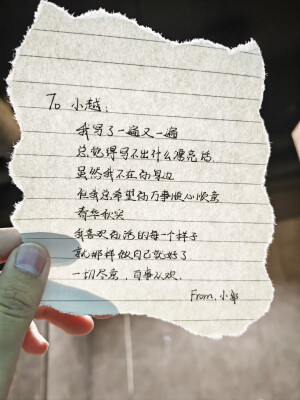 To 小越：
我写了一遍又一遍
总觉得写不出什么漂亮话
虽然我不在你身边
但我总希望你万事顺心顺意
春华秋实
我喜欢你活的每一个样子
就那样做自己就好了
一切尽意，百事从欢．
From．小